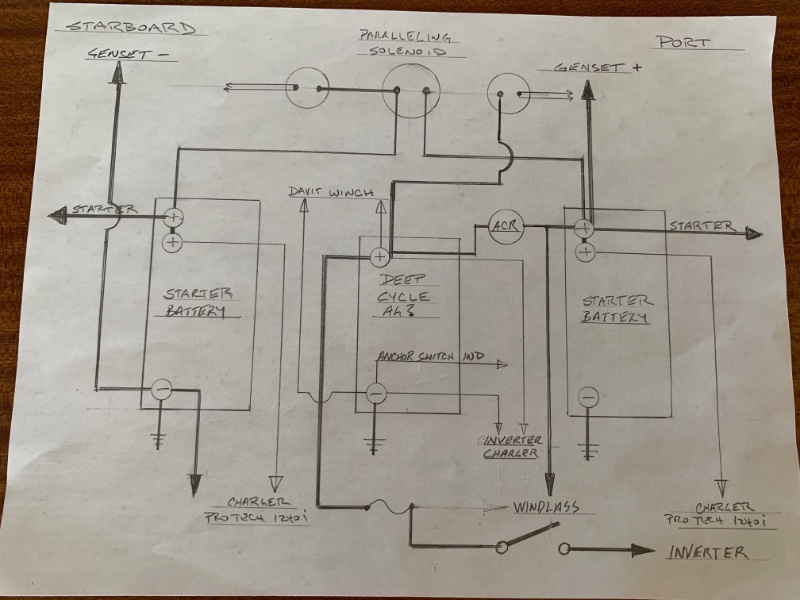 STARBOARD
PARALLELING
SOLENOID
PORT
GENSET -
GENSET +
DAVIT WINCH
STARTER
+
+
ACR
+
STARTER
+
+
STARTER
BATTERY
DEEP
CYCLE
STARTER
BATTERY
ANCHOR SWITCH IND
-
-
-
INVERTER
CHARGER
CHARGER
PROTECH 1240i
WINDLASS
CHARGER
PROTECH 1240i
INVERTER